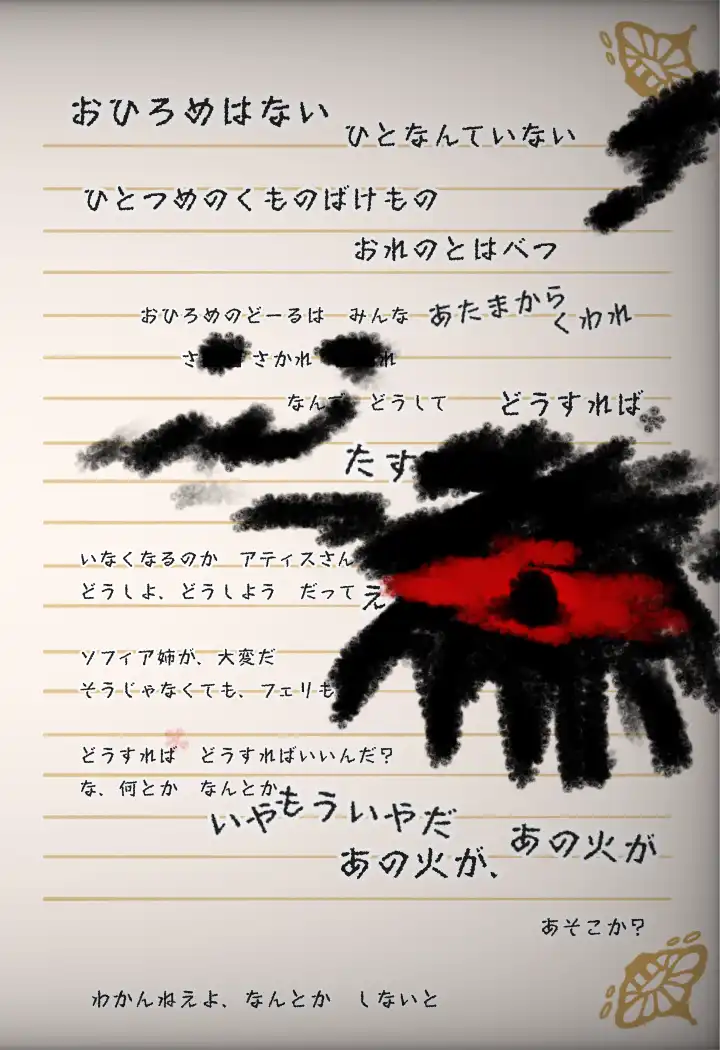 おひろめはない
ひとなんていない
ひとつめのくものばけもの
おれのとはべつ
おひろめのどーるは　みんな　あたまから
くわれ
さ さかれ れ
なんで　どうして　どうすれば
たす
いなくなるのか　アティスさん
どうしよ、どうしよう　だって え
ソフィア姉が、大変だ
そうじゃなくても、フェリも
どうすれば　どうすればいいんだ？
な、何とか　なんとか
いやもういやだ
あの火が、あの火が
あそこか？
わかんねえよ、なんとか　しないと